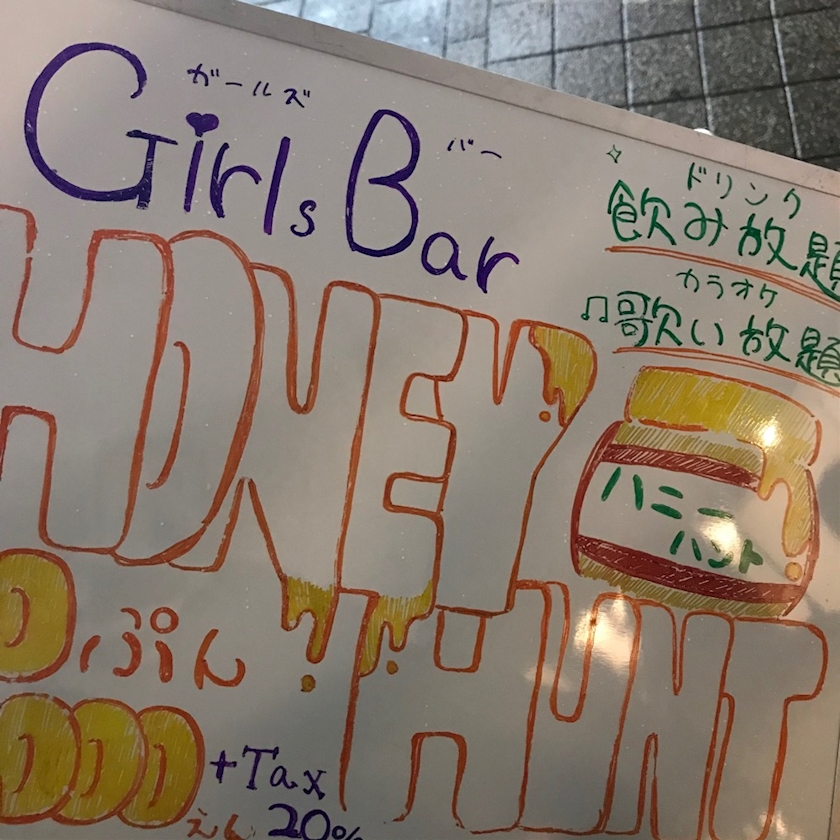 ガールズ バー
Girls Bar
ドリンク
飲み放題
カラオケ
♫歌い放題
HONEY
ハニー
ハント
HUNT
0ぷん
000えん
+Tax
20%